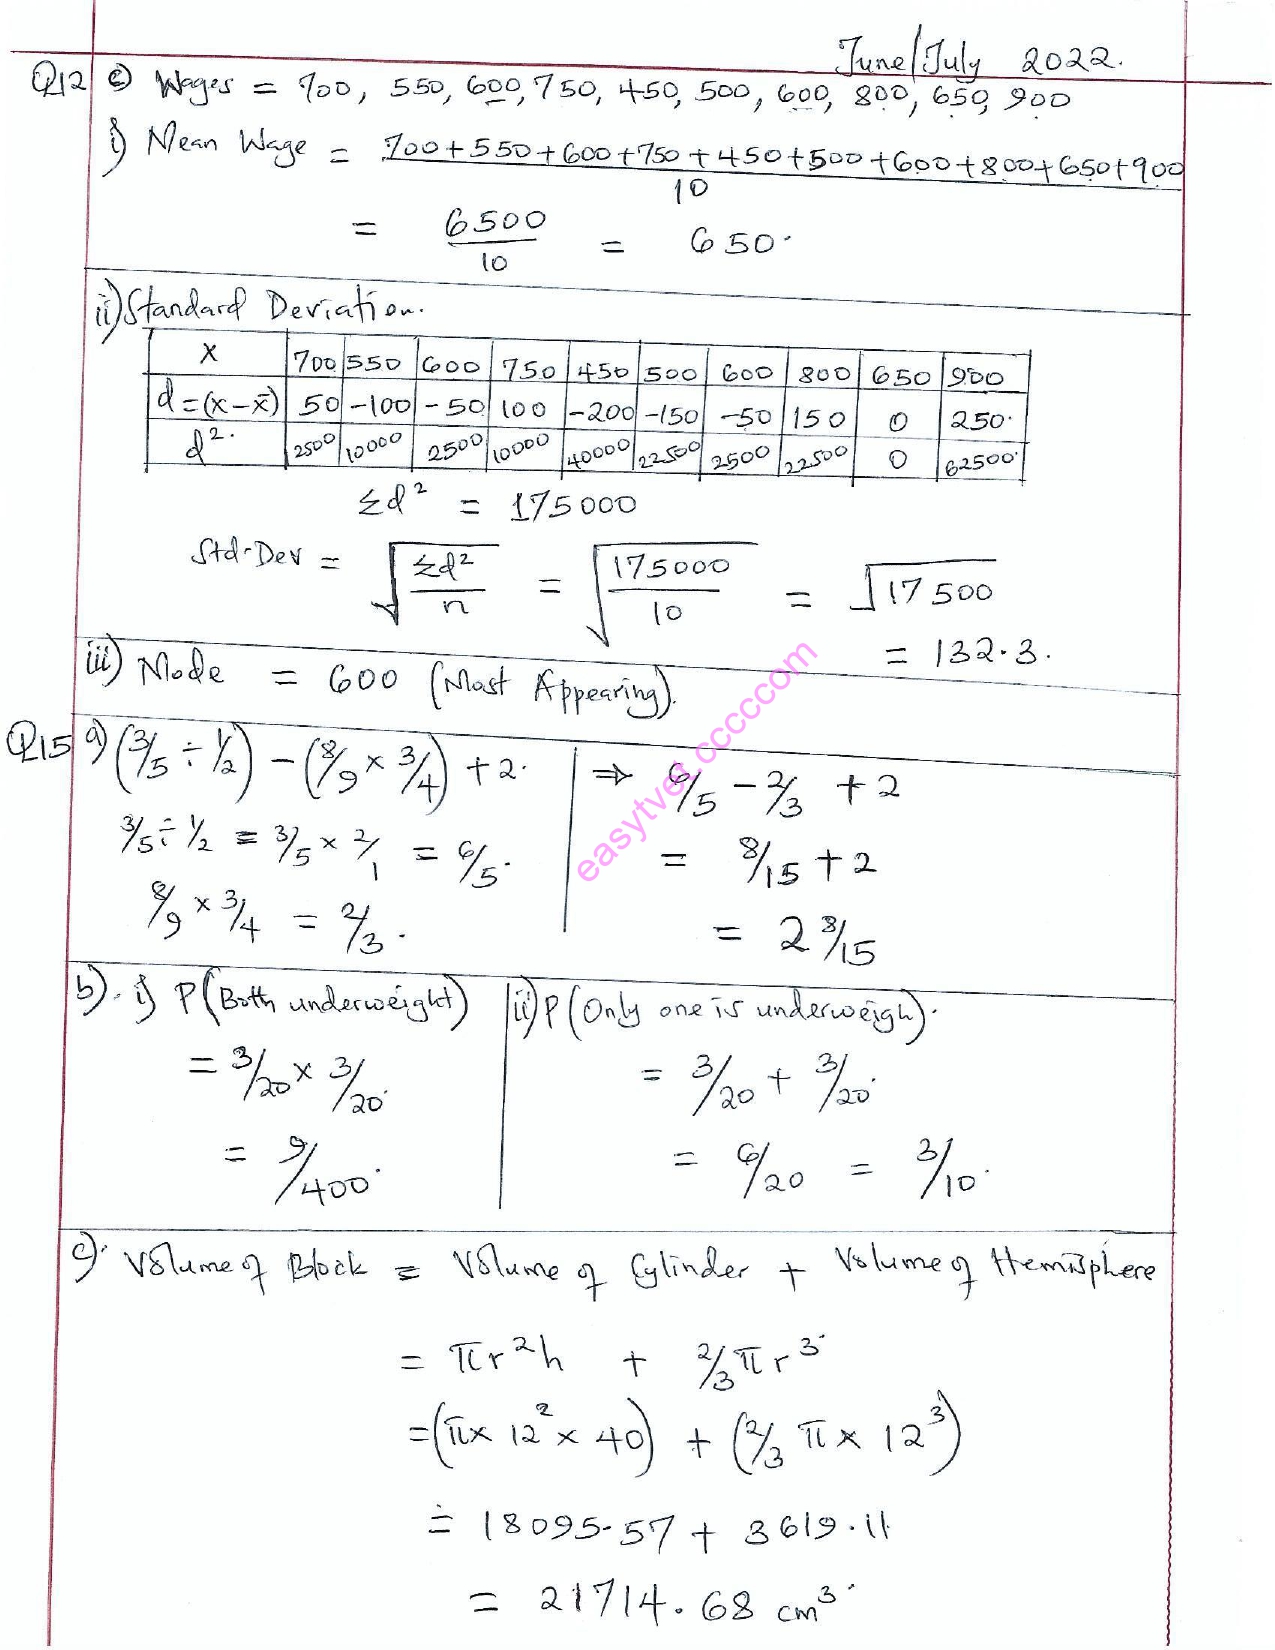 June/July 2022.
Q12 c) Wages = 700, 550, 600, 750, 450, 500, 600, 800, 650, 900
i) Mean Wage = 700+550+600+750+450+500+600+800+650+900
10
= 6500/10 = 650.
ii) Standard Deviation.
x 700 550 600 750 450 500 600 800 650 900
d=(x-x̄) 50 -100 -50 100 -200 -150 -50 150 0 250.
d². 2500 10000 2500 10000 40000 22500 2500 22500 0 62500.
Σd² = 175000
Std-Dev = √(Σd²/n) = √(175000/10) = √17500
= 132.3.
iii) Mode = 600 (Most Appearing).
Q15 a) (3/5 ÷ 1/2) - (8/9 × 3/4) + 2.
3/5 ÷ 1/2 = 3/5 × 2/1 = 6/5.
8/9 × 3/4 = 2/3.
⇒ 6/5 - 2/3 + 2
= 8/15 + 2
= 2 8/15
b). i) P(Both underweight)
= 3/20 × 3/20.
= 9/400.
ii) P(Only one is underweigh).
= 3/20 + 3/20.
= 6/20 = 3/10.
c). Volume of Block = Volume of Cylinder + Volume of Hemisphere
= πr²h + 2/3πr³
= (π× 12² × 40) + (2/3 π × 12³)
= 18095.57 + 3619.11
= 21714.68 cm³.
easytvet.cccccom